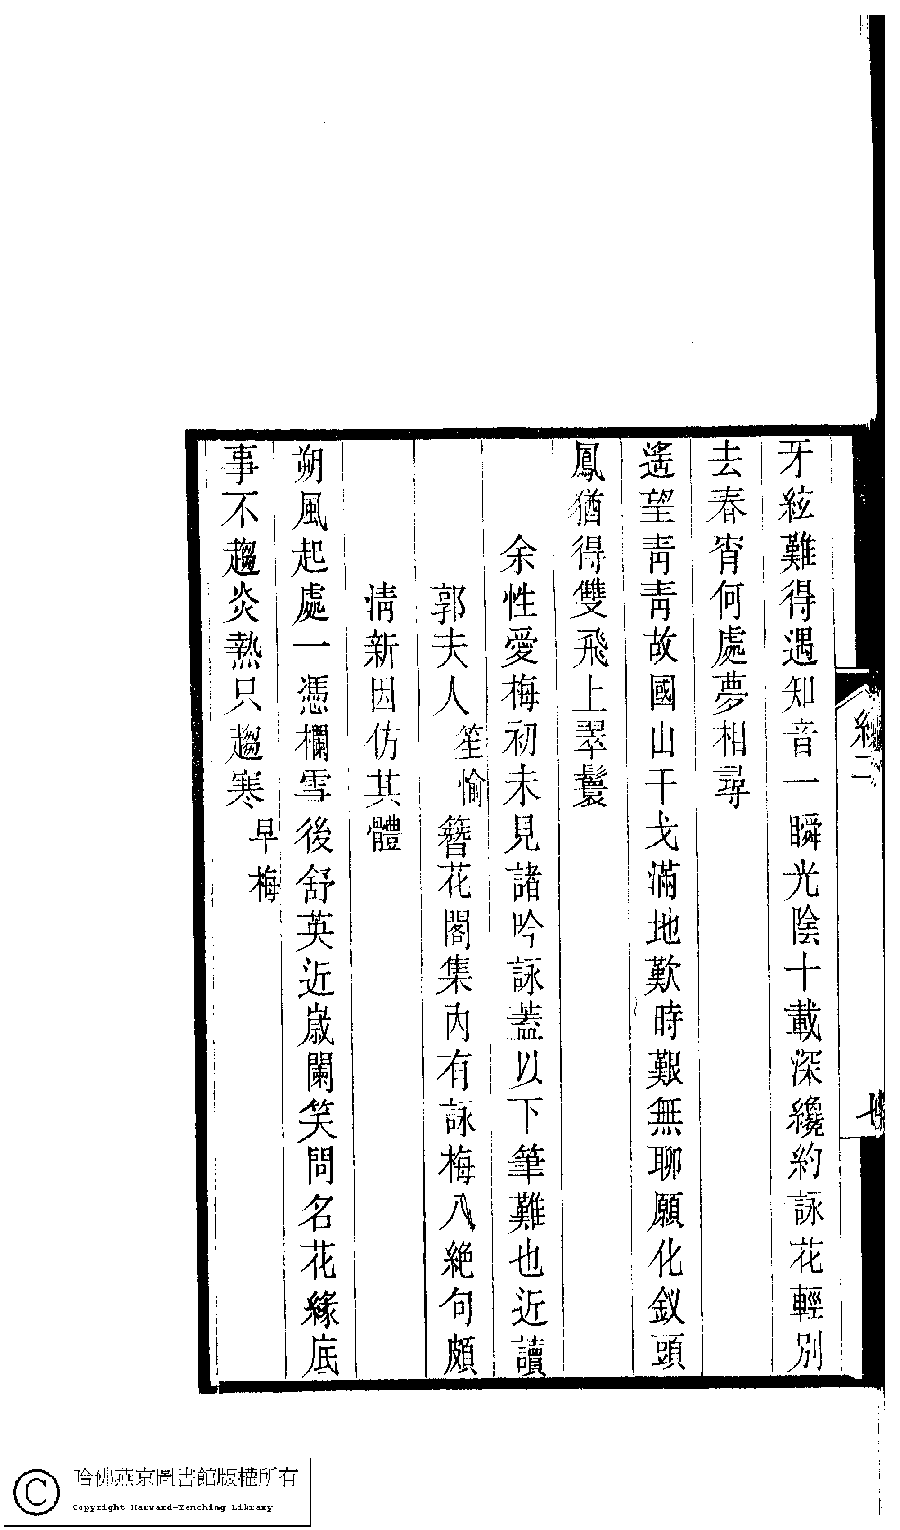 牙絃難得遇知音一瞬光陰十載深纔約詠花輕別
去春宵何處夢相尋
遙望青青故國山干戈滿地歎時艱無聊願化釵頭
鳳猶得雙飛上翠鬟
余性愛梅初未見諸吟詠蓋以下筆難也近讀
郭夫人笙愉簪花閣集內有詠梅八絶句頗
清新因仿其體
朔風起處一憑欄雪後舒英近歲闌笑問名花緣底
事不趨炎熱只趨寒早梅
二
哈佛燕京圖書館版權所有
Copyright Harvard-Yenching Library